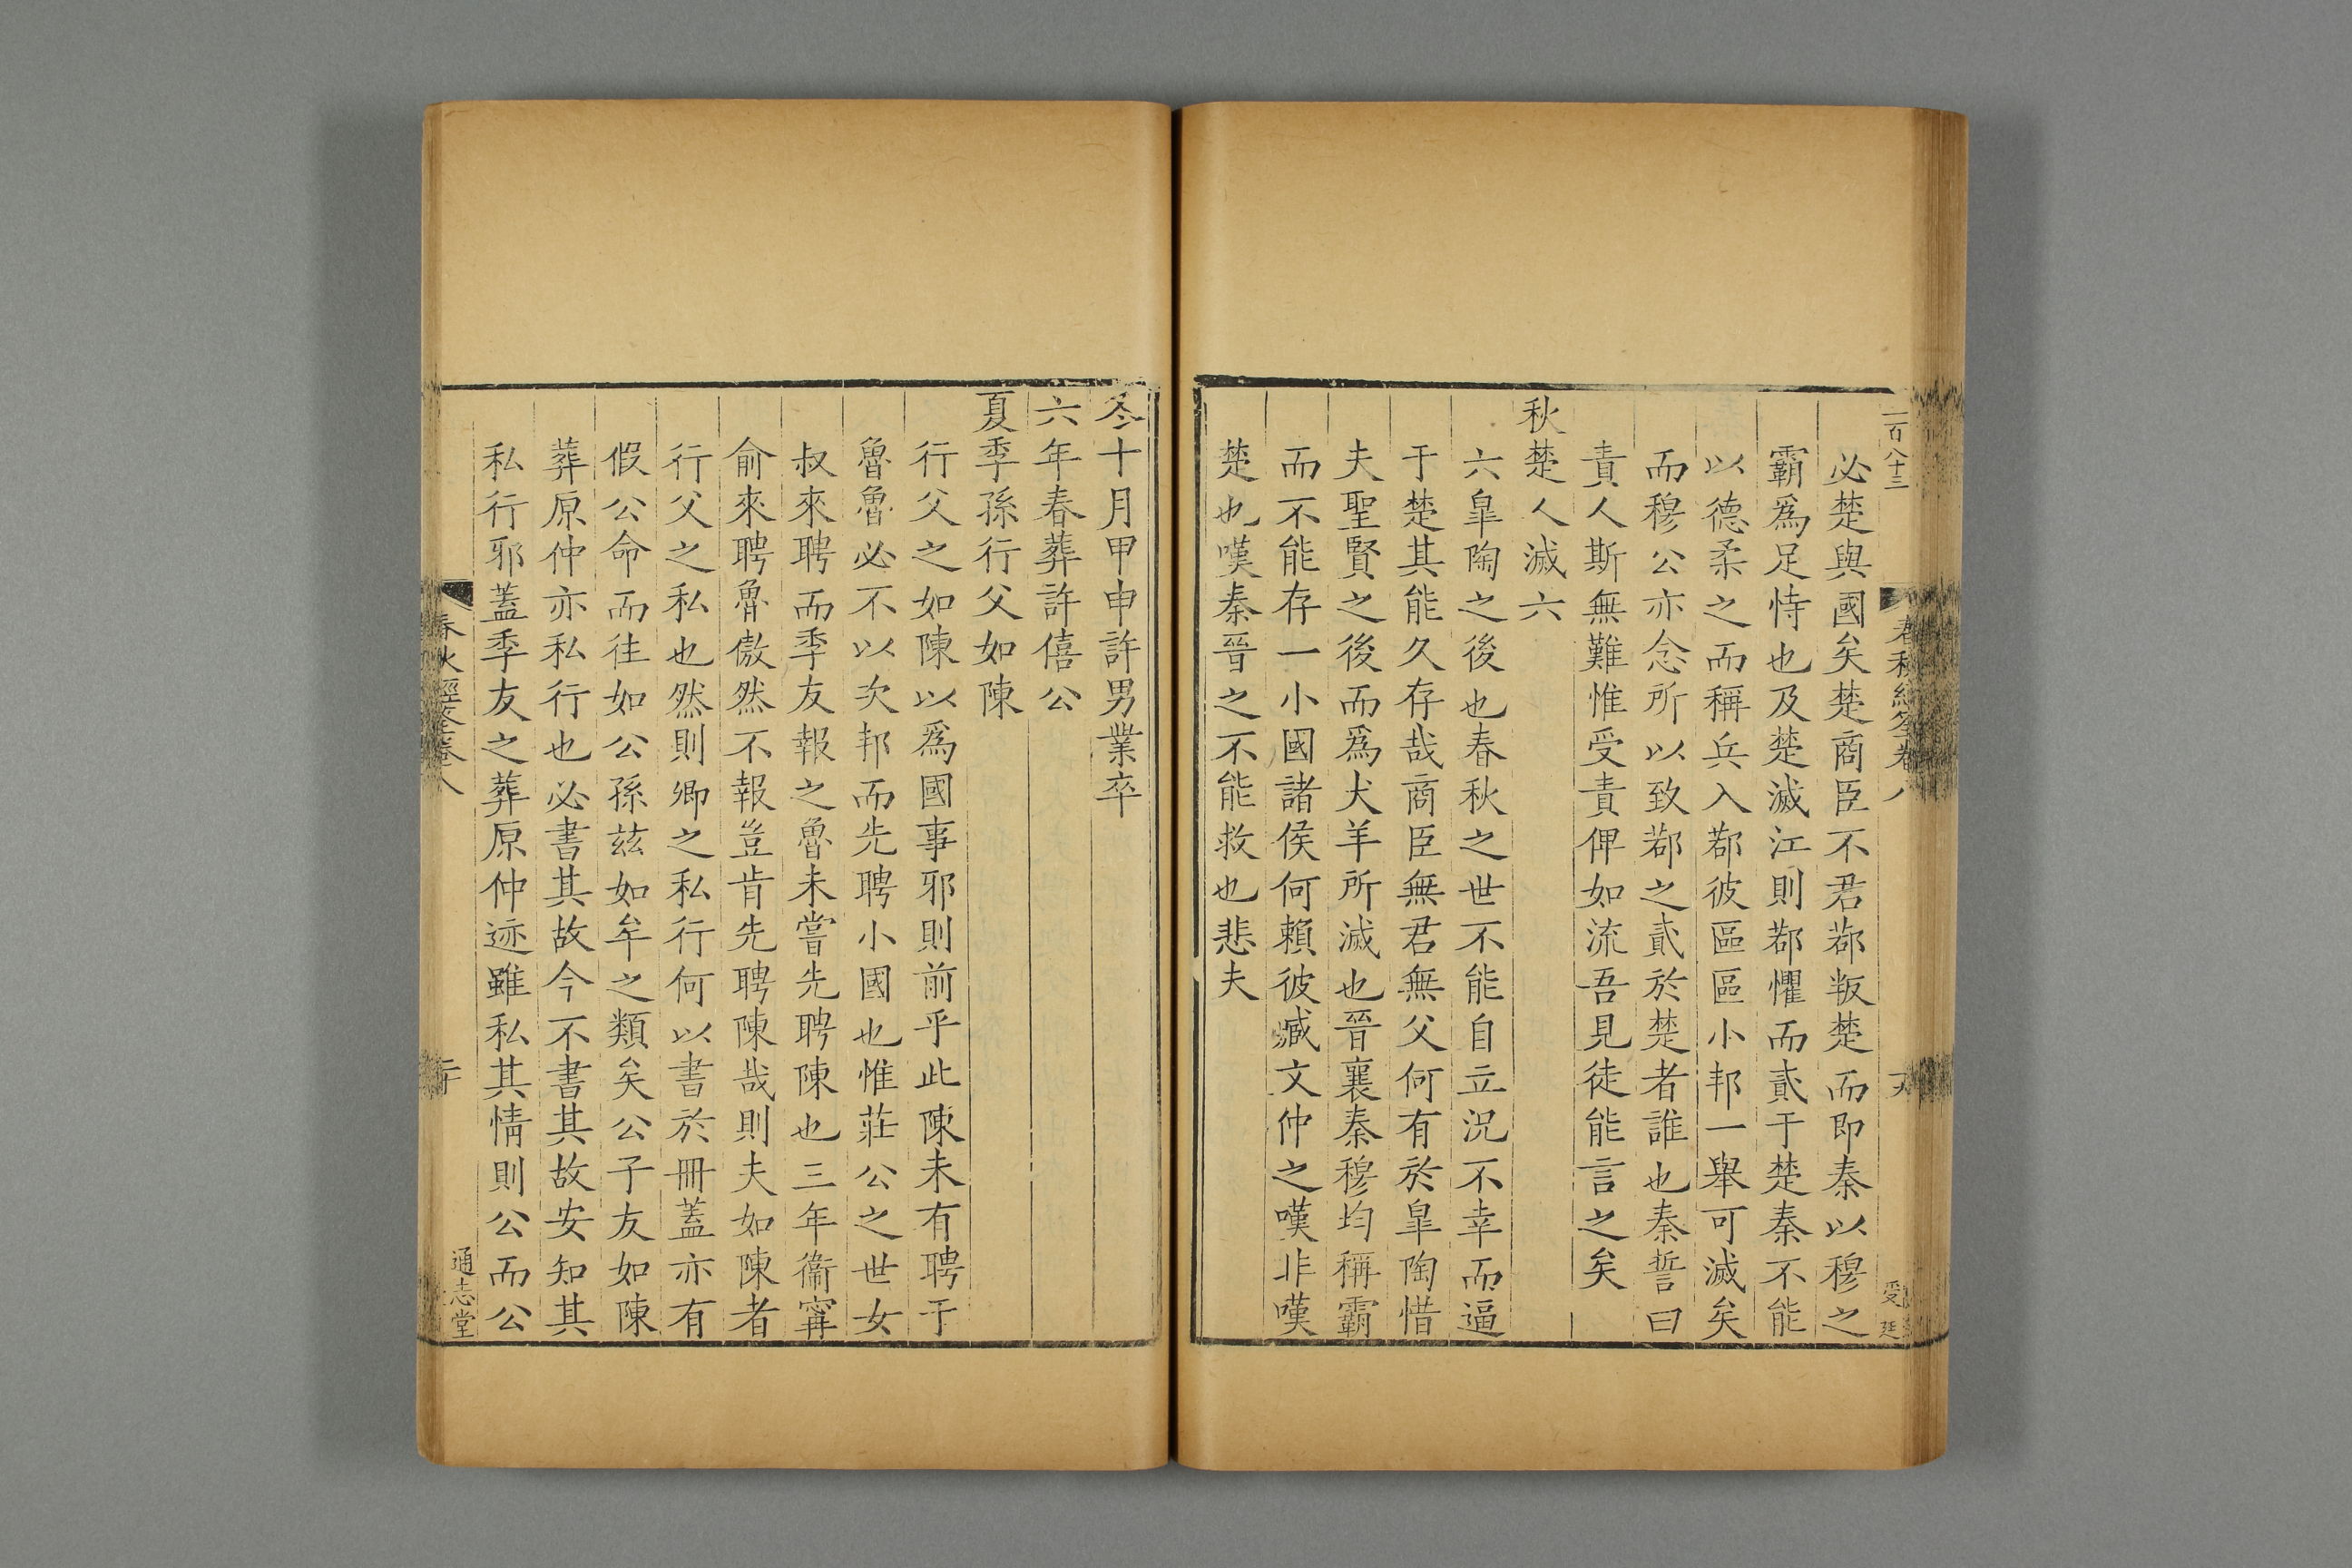 二百八十三
春秋經筌卷八
受廷
必楚與國矣楚商臣不君鄀叛楚而即秦以穆之
霸爲足恃也及楚滅江則鄀懼而貳于楚秦不能
以德柔之而稱兵入鄀彼區區小邦一舉可滅矣
而穆公亦念所以致鄀之貳於楚者誰也秦誓曰
責人斯無難惟受責俾如流吾見徒能言之矣
秋楚人滅六
六皐陶之後也春秋之世不能自立況不幸而逼
于楚其能久存哉商臣無君無父何有於皐陶惜
夫聖賢之後而爲犬羊所滅也晉襄秦穆均稱霸
而不能存一小國諸侯何賴彼臧文仲之嘆非嘆
楚也嘆秦晉之不能救也悲夫
冬十月甲申許男業卒
六年春葬許僖公
夏季孫行父如陳
行父之如陳以爲國事邪則前乎此陳未有聘于
魯魯必不以次邦而先聘小國也惟莊公之世女
叔來聘而季友報之魯未嘗先聘陳也三年衞甯
俞來聘魯傲然不報豈肯先聘陳哉則夫如陳者
行父之私也然則卿之私行何以書於冊蓋亦有
假公命而往如公孫茲如牟之類矣公子友如陳
葬原仲亦私行也必書其故今不書其故安知其
私行邪蓋季友之葬原仲迹雖私其情則公而公
春秋經筌卷八
通志堂